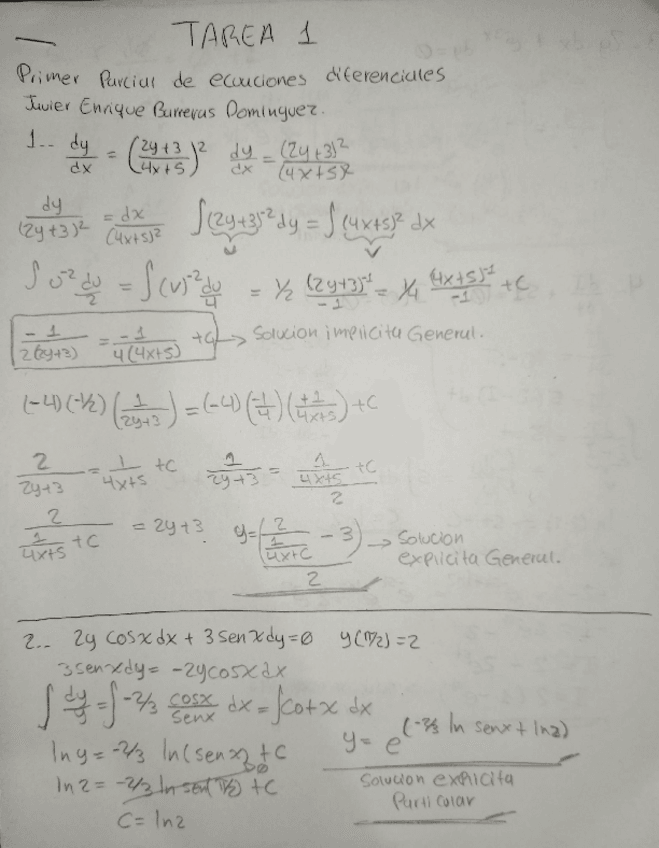 TAREA 1
Primer Parcial de ecuaciones diferenciales
Javier Enrique Barreras Dominguez.
1.- dy/dx = ((2y+3)/(4x+5))² dy/dx = (2y+3)²/(4x+5)²
dy/(2y+3)² = dx/(4x+5)² ∫(2y+3)⁻² dy = ∫(4x+5)² dx
u v
∫ u⁻² du/2 = ∫(v)⁻² du/4 = 1/2 (2y+3)⁻¹/-1 = 1/4 (4x+5)⁻¹/-1 + C
-1/2(2y+3) = -1/4(4x+5) + C → Solucion implicita General.
(-4)(-1/2)(1/(2y+3)) = (-4)(-1/4)(+1/(4x+5)) + C
2/(2y+3) = 1/(4x+5) + C 1/(2y+3) = (1/(4x+5) + C)/2
2/(1/(4x+5) + C) = 2y+3 y = (2/(1/(4x+C)) - 3)/2 → Solucion
explicita General.
2.- 2y Cosx dx + 3 Sen x dy = 0 y(π/2) = 2
3 sen x dy = -2y cosx dx
∫ dy/y = ∫ -2/3 cosx/senx dx = ∫cotx dx
ln y = -2/3 ln(sen x) + C y = e^(-2/3 ln senx + ln2)
ln 2 = -2/3 ln sen(π/2) + C 0
C = ln2
Solucion explicita
Particular